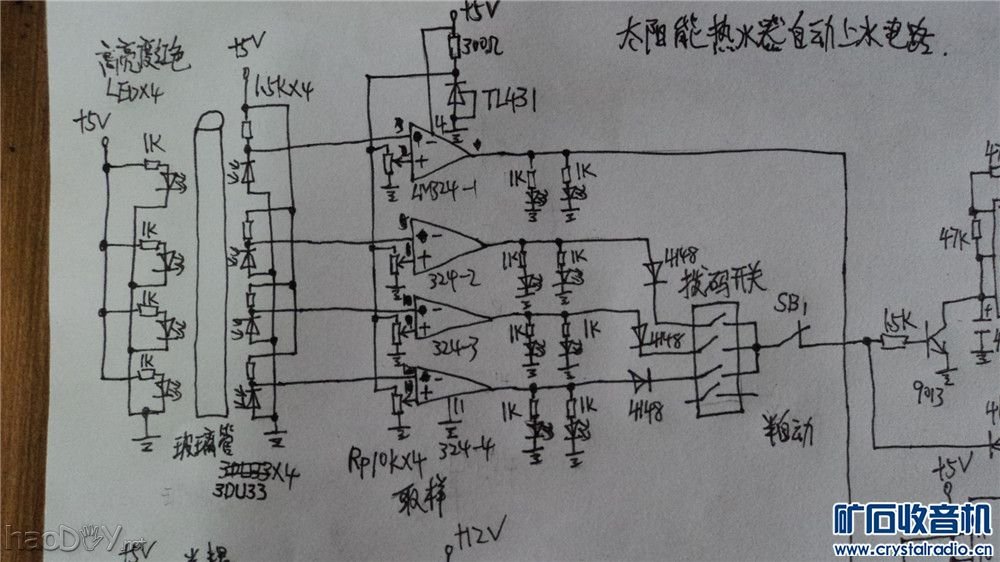 太阳能热水器自动上水电路.
+5V
300Ω
TL431
高亮度红色
LED×4
+5V
+5V
1.5K×4
1K
1K
1K
1K
4
LM324-1
324-2
324-3
324-4
11
1K
1K
1K
1K
1K
1K
1K
1K
4148
4148
4148
拨码开关
SB1
半自动
15K
9013
47K
+5V
玻璃管
3DU33
×4
Rp10K×4
取样
+12V
+5V
haoDIY.net
矿石收音机
www.crystalradio.cn